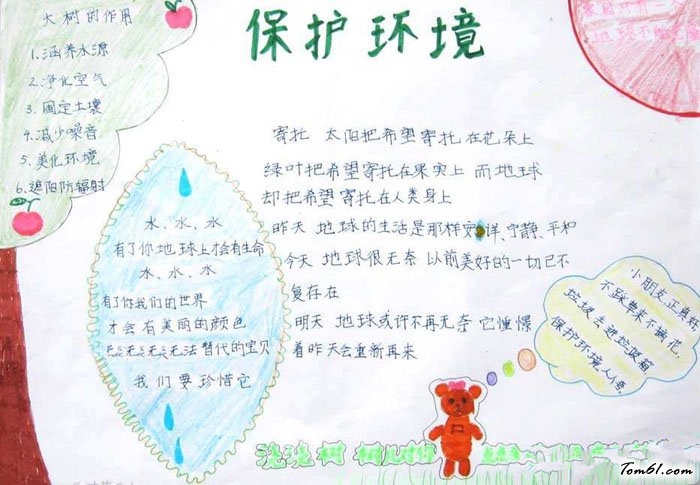 保护环境
大树的作用
1.涵养水源
2.净化空气
3.固定土壤
4.减少噪音
5.美化环境
6.遮阳防辐射
寄托 太阳把希望寄托在花朵上
绿叶把希望寄托在果实上 而地球
却把希望寄托在人类身上
昨天 地球的生活是那样安详、宁静、平和
今天 地球很无奈 以前美好的一切已不
复存在
明天 地球或许不再无奈 它憧憬
着昨天会重新再来
水、水、水
有了你地球上才会有生命
水、水、水
有了你我们的世界
才会有美丽的颜色
无法替代的宝贝
我们要珍惜它
小朋友正真好,
不踩草来不摘花,
垃圾去进垃圾箱,
保护环境人人
浇浇树 树儿对你
Tom61.com